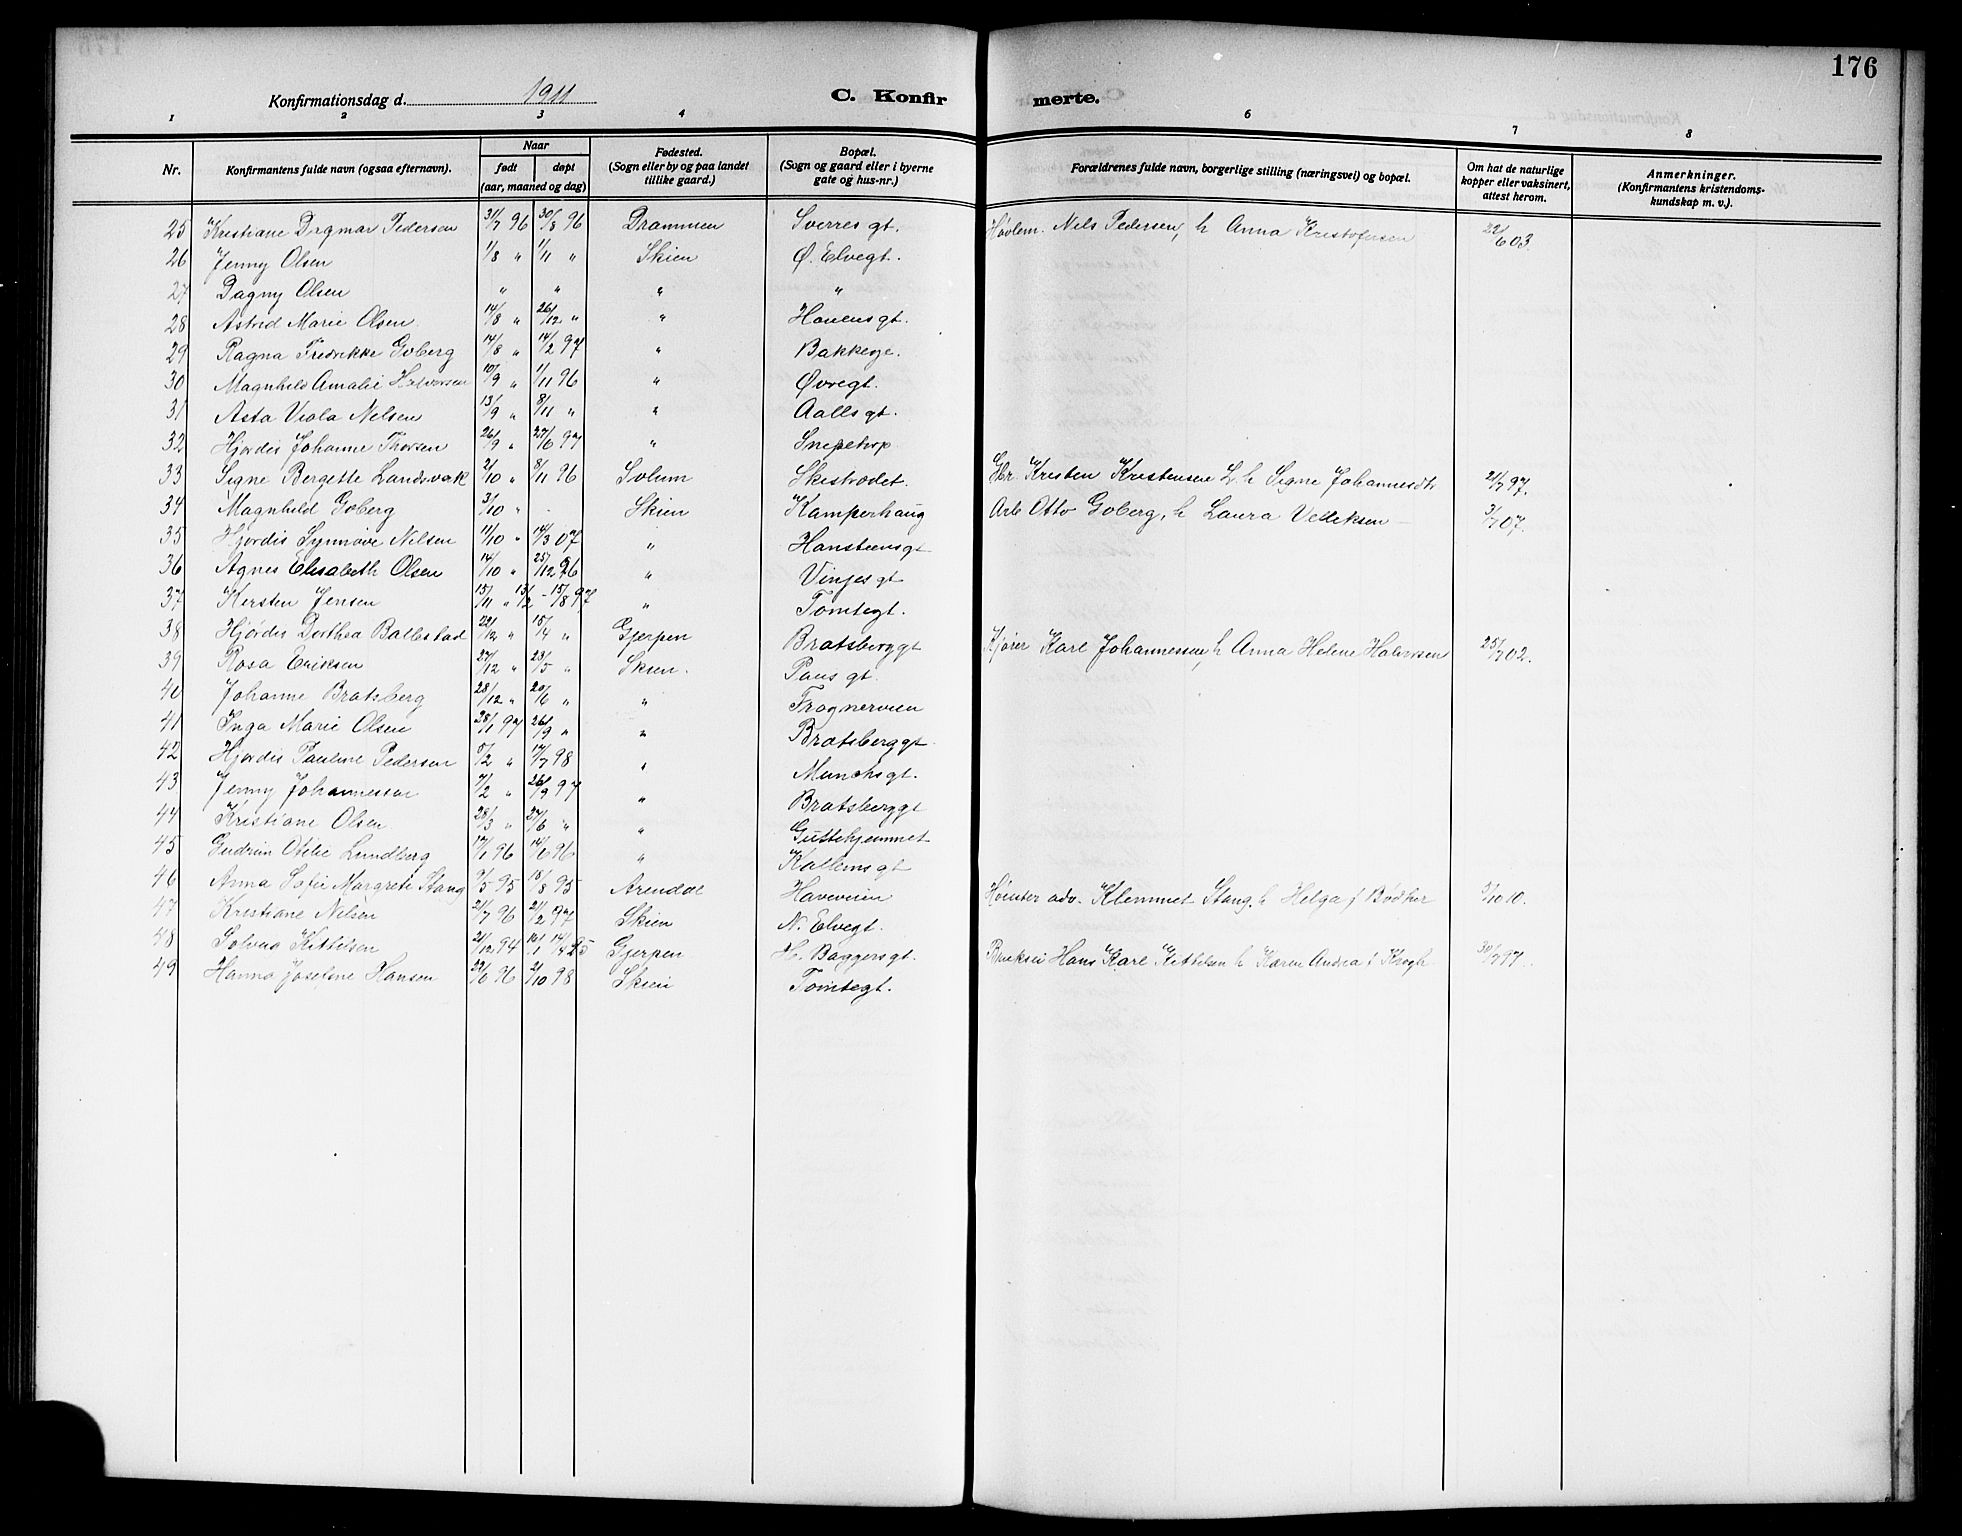 176
Konfirmationsdag d. 1911
C. Konfir merte.
1 2 3 4 6 7 8
Nr. Konfirmantens fulde navn (ogsaa efternavn). Naar født døpt (aar, maaned og dag) Fødested. (Sogn eller by og paa landet tillike gaard.) Bopæl. (Sogn og gaard eller i byerne gate og hus-nr.) Forældrenes fulde navn, borgerlige stilling (næringsvei) og bopæl. Om hat de naturlige kopper eller vaksinert, attest herom. Anmerkninger. (Konfirmantens kristendoms-kundskap m. v.).
25 Kristiane Dagmar Pedersen 31/7 96 30/8 96 Drammen Sverres gt. Høvlem. Nels Pedersen, h Anna Kristofersen 22/6 03.
26 Jenny Olsen 1/8 " 1/11 " Skien Ø. Elvegt.
27 Dagny Olsen " " " "
28 Astrid Marie Olsen 14/8 " 26/12 " " Hauensgt.
29 Ragna Fredrikke Goberg 14/8 " 14/2 97 "
30 Magnhild Amalie Halvorsen 10/9 " 1/11 96 " Øvregt.
31 Asta Viola Nelsen 13/9 " 8/11 " " Aallsgt.
32 Hjordis Johanne Thorsen 26/9 " 27/6 97 " Snipetorp
33 Signe Bergette Landsverk 2/10 " 8/11 96 Solum Skistredet. Gbr. Kresten Kristensen L. h Signe Johannesdtr 21/7 97.
34 Magnhild Goberg 3/10 " Skien Kamperhaug Arb Otto Goberg, h Laura Velleksen 3/7 07.
35 Hjordis Synnøve Nilsen 11/10 " 14/3 07 " Hansteensgt
36 Agnes Elisabeth Olsen 14/10 " 25/12 96 " Vinjes gt
37 Kersten Jensen 15/11 " 13/2 - 15/8 97 " Tomtegt.
38 Hjørdis Dorthea Ballestad 22/12 " 15/4 " Gjerpen Bratsberggt Kjører Karl Johannessen, h Anna Helene Halvorsen 25/7 02.
39 Rosa Eriksen 27/12 " 23/5 " Skien. Paus gt.
40 Johanne Bratsberg 28/12 " 20/6 " " Frognerveien
41 Inga Marie Olsen 28/1 97 26/9 " " Bratsberggt.
42 Hjordis Pauline Pedersen 5/2 " 17/7 98 " Munchsgt.
43 Jenny Johannessen 7/2 " 26/9 97 " Bratsberggt
44 Kristiane Olsen 28/3 " 27/6 " " Guttehjemmet
45 Gudrun Otelie Lundberg 17/1 96 14/6 96 "
46 Anna Sofie Margrete Stang 9/5 95 18/8 95 Arendal Haveveien adv. Klemmet Stang. h Helga f Bødker 3/10 10.
47 Kristiane Nilsen 21/7 96 21/2 97 Skien N. Elvegt.
48 Solveig Kittelsen 21/12 94 Gjerpen H. Baggersgt. Hans Karl Kittelsen h Karen Andrea f Krogh 30/7 97.
49 Hanna Josefine Hansen 22/6 96 2/10 98 Skien Tomtegt.